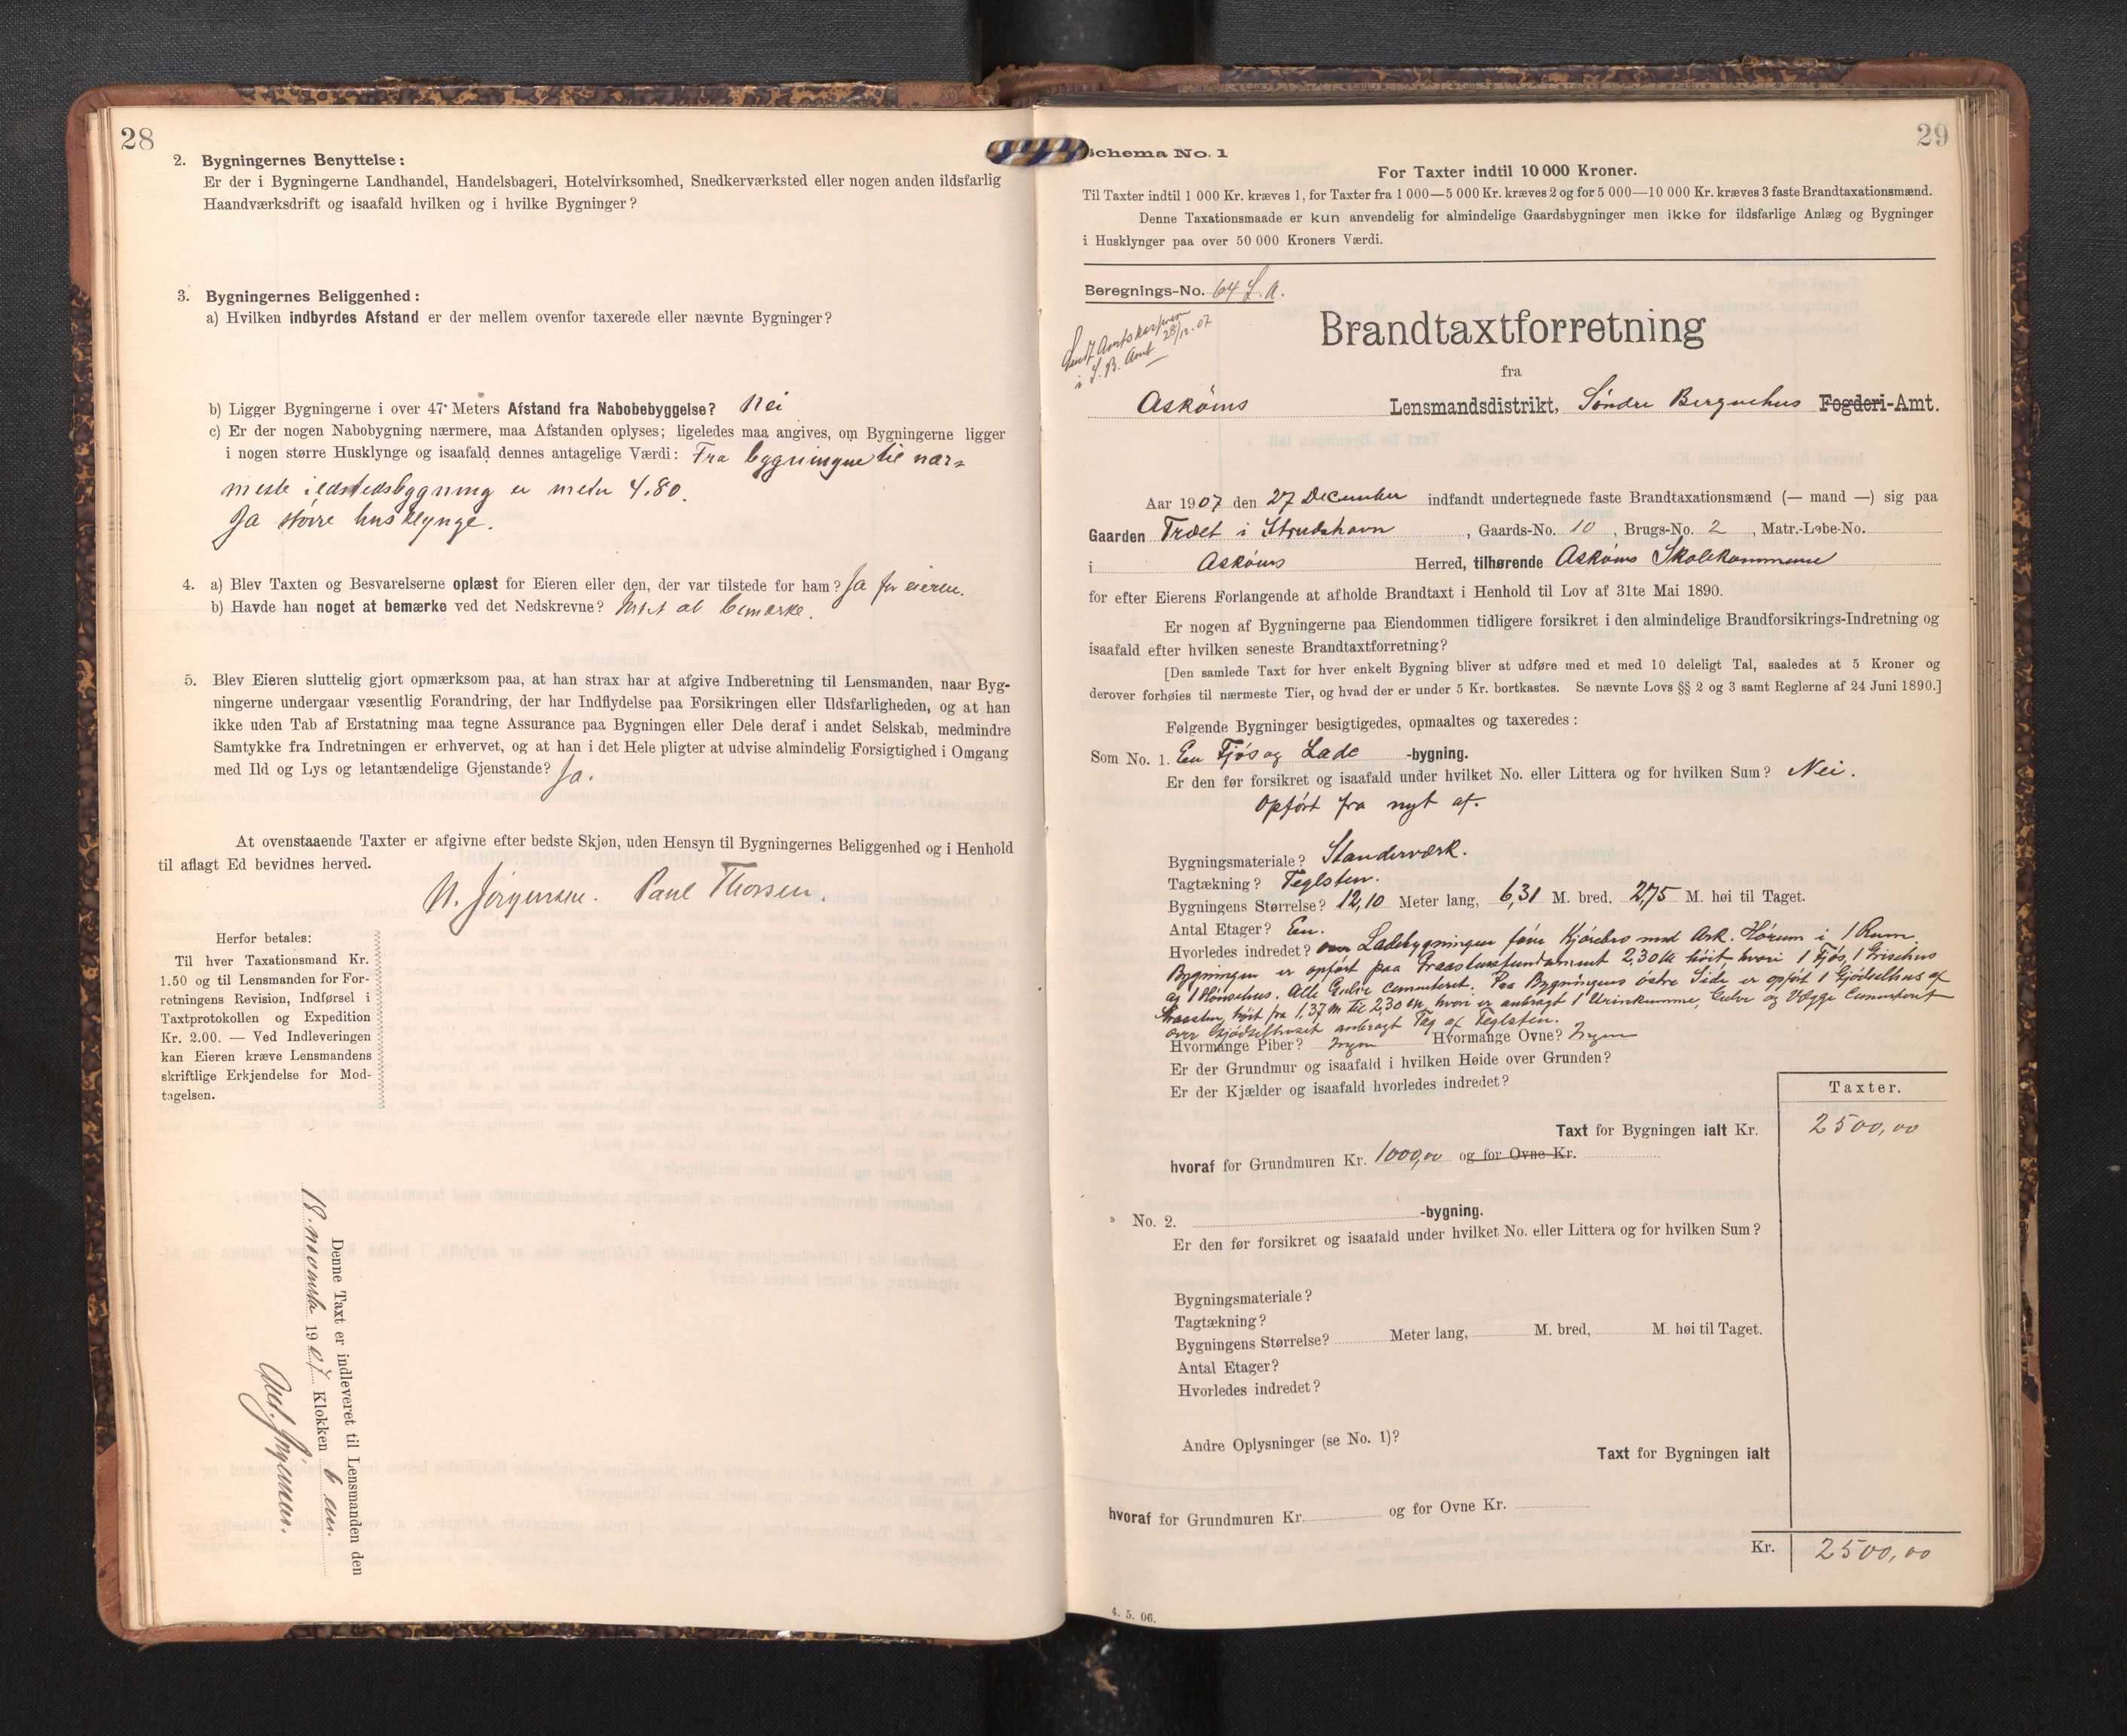 28
2. Bygningernes Benyttelse:
Er der i Bygningerne Landhandel, Handelsbageri, Hotelvirksomhed, Snedkerværksted eller nogen anden ildsfarlig
Haandværksdrift og isaafald hvilken og i hvilke Bygninger?
3. Bygningernes Beliggenhed:
a) Hvilken indbyrdes Afstand er der mellem ovenfor taxerede eller nævnte Bygninger?
b) Ligger Bygningerne i over 47 Meters Afstand fra Nabobebyggelse? Nei
c) Er der nogen Nabobygning nærmere, maa Afstanden oplyses; ligeledes maa angives, om Bygningerne ligger
i nogen større Husklynge og isaafald dennes antagelige Værdi: Fra bygningne til nær-
meste ildstedsbygning er meter 4.80.
Ja større husklynge.
4. a) Blev Taxten og Besvarelserne oplæst for Eieren eller den, der var tilstede for ham? Ja for eieren.
b) Havde han noget at bemærke ved det Nedskrevne? Intet at bemærke.
5. Blev Eieren sluttelig gjort opmærksom paa, at han strax har at afgive Indberetning til Lensmanden, naar Byg-
ningerne undergaar væsentlig Forandring, der har Indflydelse paa Forsikringen eller Ildsfarligheden, og at han
ikke uden Tab af Erstatning maa tegne Assurance paa Bygningen eller Dele deraf i andet Selskab, medmindre
Samtykke fra Indretningen er erhvervet, og at han i det Hele pligter at udvise almindelig Forsigtighed i Omgang
med Ild og Lys og letantændelige Gjenstande? Ja.
At ovenstaaende Taxter er afgivne efter bedste Skjøn, uden Hensyn til Bygningernes Beliggenhed og i Henhold
til aflagt Ed bevidnes herved.
N. Jørgensen. Paul Thorsen.
Herfor betales:
Til hver Taxationsmand Kr.
1.50 og til Lensmanden for For-
retningens Revision, Indførsel i
Taxtprotokollen og Expedition
Kr. 2.00. — Ved Indleveringen
kan Eieren kræve Lensmandens
skriftlige Erkjendelse for Mod-
tagelsen.
Denne Taxt er indleveret til Lensmanden den
18. november 1907 Klokken 6 em.
29
Schema No. 1
For Taxter indtil 10 000 Kroner.
Til Taxter indtil 1 000 Kr. kræves 1, for Taxter fra 1 000—5 000 Kr. kræves 2 og for 5 000—10 000 Kr. kræves 3 faste Brandtaxationsmænd.
Denne Taxationsmaade er kun anvendelig for almindelige Gaardsbygninger men ikke for ildsfarlige Anlæg og Bygninger
i Husklynger paa over 50 000 Kroners Værdi.
Beregnings-No. 64 L. A.
Sendt Amtskasseren
i S. B. Amt 28/12.07
Brandtaxtforretning
fra
Askøens Lensmandsdistrikt, Søndre Bergenhus Fogderi-Amt.
Aar 1907 den 27 December indfandt undertegnede faste Brandtaxationsmænd (— mand —) sig paa
Gaarden Trædet i Strudshavn, Gaards-No. 10, Brugs-No. 2, Matr.-Løbe-No.
i Askøens Herred, tilhørende Askøens Skolekommune
for efter Eierens Forlangende at afholde Brandtaxt i Henhold til Lov af 31te Mai 1890.
Er nogen af Bygningerne paa Eiendommen tidligere forsikret i den almindelige Brandforsikrings-Indretning og
isaafald efter hvilken seneste Brandtaxtforretning?
[Den samlede Taxt for hver enkelt Bygning bliver at udføre med et med 10 deleligt Tal, saaledes at 5 Kroner og
derover forhøies til nærmeste Tier, og hvad der er under 5 Kr. bortkastes. Se nævnte Lovs §§ 2 og 3 samt Reglerne af 24 Juni 1890.]
Følgende Bygninger besigtigedes, opmaaltes og taxeredes:
Som No. 1. En Fjøs og Lade -bygning.
Er den før forsikret og isaafald under hvilket No. eller Littera og for hvilken Sum? Nei.
Opført fra nyt af.
Bygningsmateriale? Standerværk.
Tagtækning? Teglsten.
Bygningens Størrelse? 12,10 Meter lang, 6,31 M. bred, 2,75 M. høi til Taget.
Antal Etager? En.
Hvorledes indredet? over Ladebygningen føres Kjørebro med Ark. Hørum i 1 Rum
Bygningen er opført paa Graastensfundament 2,30 M høit hvori 1 Fjøs, 1 Grisehus
og 1 Hønsehus. Alle Gulve cementeret. Paa Bygningens østre Side er opført 1 Gjødselhus af
Graasten, høit fra 1,37 m til 2,30 m, hvori er anbragt 1 Urinkumme, Gulve og Vægge Cementeret
over Gjødselhuset anbragt Tag af Teglsten.
Hvormange Piber? Ingen Hvormange Ovne? Ingen
Er der Grundmur og isaafald i hvilken Høide over Grunden?
Er der Kjælder og isaafald hvorledes indredet?
Taxter.
Taxt for Bygningen ialt Kr. 2500,00
hvoraf for Grundmuren Kr. 1000,00 og for Ovne Kr.
No. 2. -bygning.
Er den før forsikret og isaafald under hvilket No. eller Littera og for hvilken Sum?
Bygningsmateriale?
Tagtækning?
Bygningens Størrelse? Meter lang, M. bred, M. høi til Taget.
Antal Etager?
Hvorledes indredet?
Andre Oplysninger (se No. 1)?
Taxt for Bygningen ialt
hvoraf for Grundmuren Kr. og for Ovne Kr.
Kr. 2500,00
4. 5. 06.